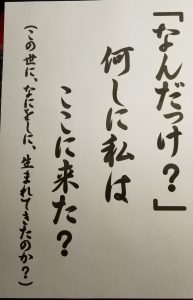 「なんだっけ？」
何しに私は
ここに来た？
（この世に、なにをしに、生まれてきたのか？）